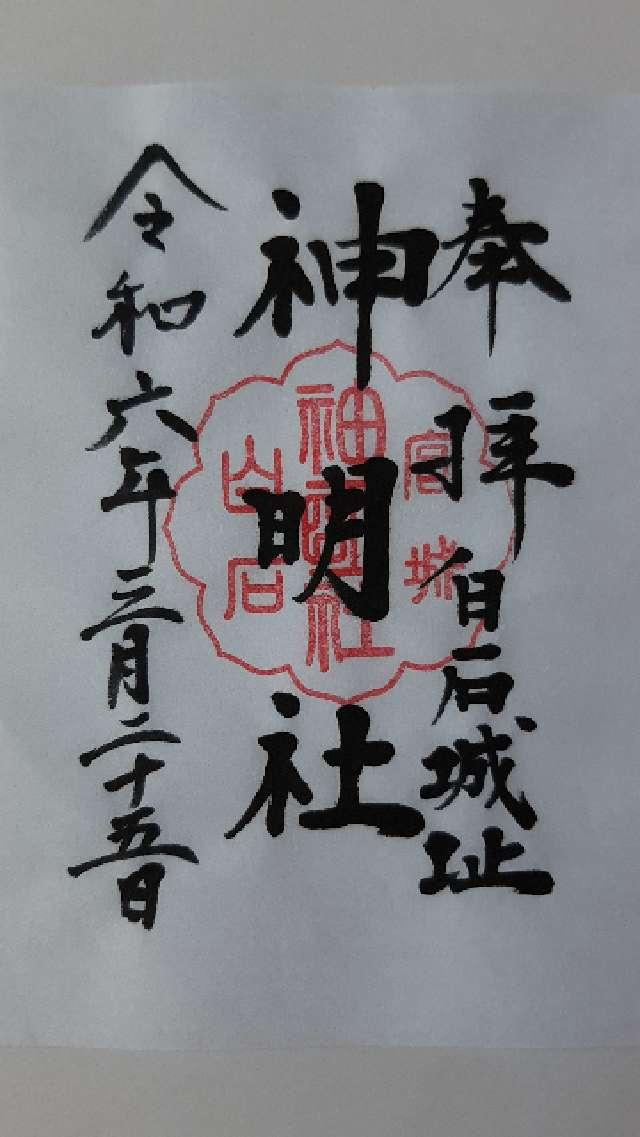 奉拝 白石城址
神明社
令和六年三月二十五日
宮城
神明社
白石